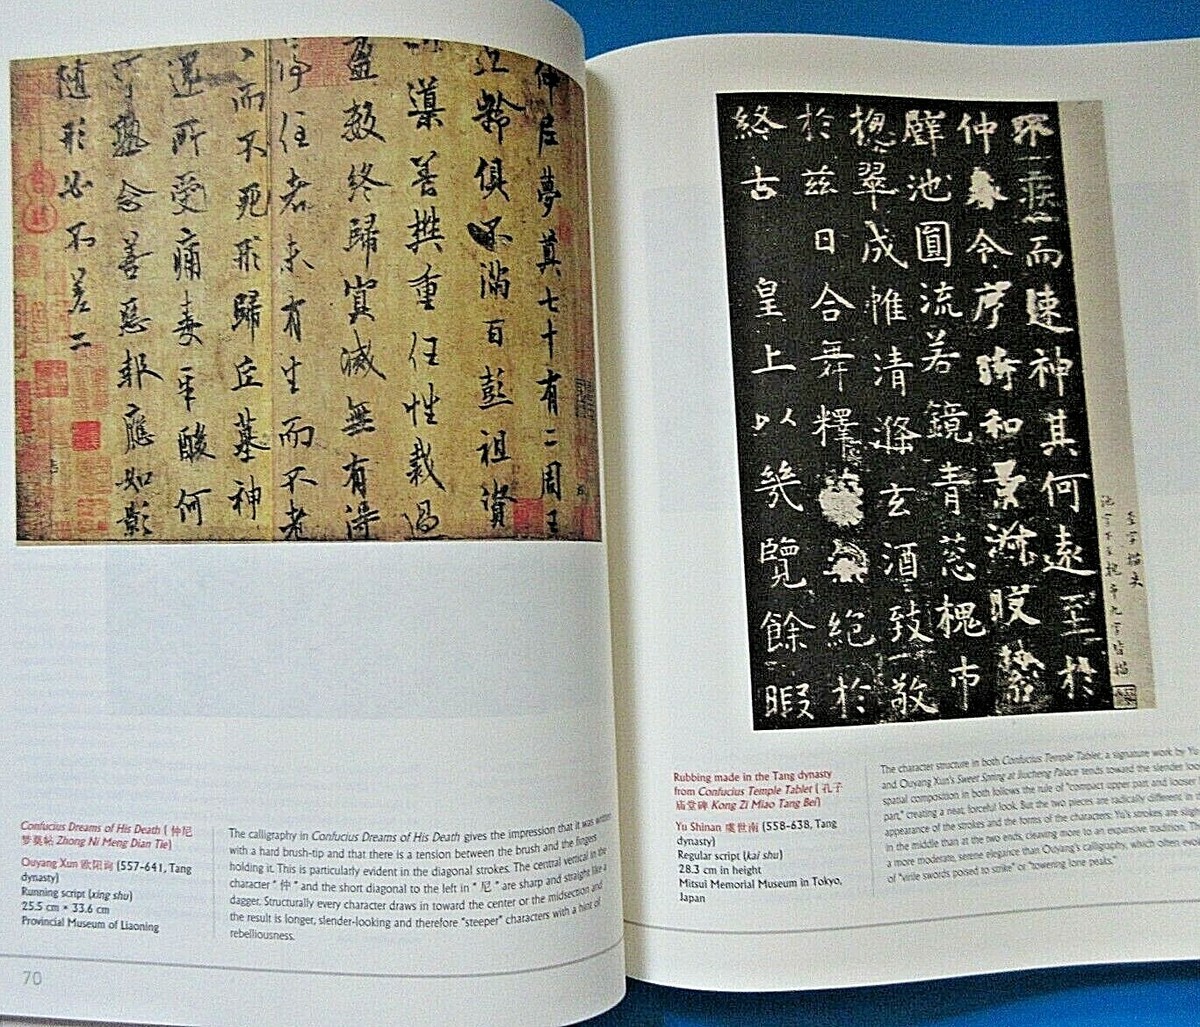 仲尼夢奠七十有二周王
齡俱不滿百彭祖資
導養樊重任性裁過
盈數終歸冥滅無有得
停住者未有生而不老
而不死形歸丘墓神
還所受痛毒辛酸何
可熟念善惡報應如影
隨形必不差二
Confucius Dreams of His Death ( 仲尼
梦奠帖 Zhong Ni Meng Dian Tie)
Ouyang Xun 欧阳询 (557-641, Tang
dynasty)
Running script (xing shu)
25.5 cm × 33.6 cm
Provincial Museum of Liaoning
The calligraphy in Confucius Dreams of His Death gives the impression that it was written
with a hard brush-tip and that there is a tension between the brush and the fingers
holding it. This is particularly evident in the diagonal strokes. The central vertical in the
character " 仲 " and the short diagonal to the left in " 尼 " are sharp and straight like a
dagger. Structurally every character draws in toward the center or the midsection and
the result is longer, slender-looking and therefore "steeper" characters with a hint of
rebelliousness.
70
不疾而速神其何遠至於
仲春令序時和景淑皎
璧池圓流若鏡青葱槐市
揔翠成帷清滌玄酒致敬
於茲日合舞釋 絕於
終古 皇上以幾覽餘暇
池字下至槐市九字皆描
Rubbing made in the Tang dynasty
from Confucius Temple Tablet ( 孔子
庙堂碑 Kong Zi Miao Tang Bei)
Yu Shinan 虞世南 (558-638, Tang
dynasty)
Regular script (kai shu)
28.3 cm in height
Mitsui Memorial Museum in Tokyo,
Japan
The character structure in both Confucius Temple Tablet, a signature work by Yu
and Ouyang Xun's Sweet Spring at Jiucheng Palace tends toward the slender
spatial composition in both follows the rule of "compact upper part and looser
part," creating a neat, forceful look. But the two pieces are radically different in
appearance of the strokes and the forms of the characters: Yu's strokes are
in the middle than at the two ends, cleaving more to an expansive tradition.
a more moderate, serene elegance than Ouyang's calligraphy, which often
of "virile swords poised to strike" or "towering lone peaks."